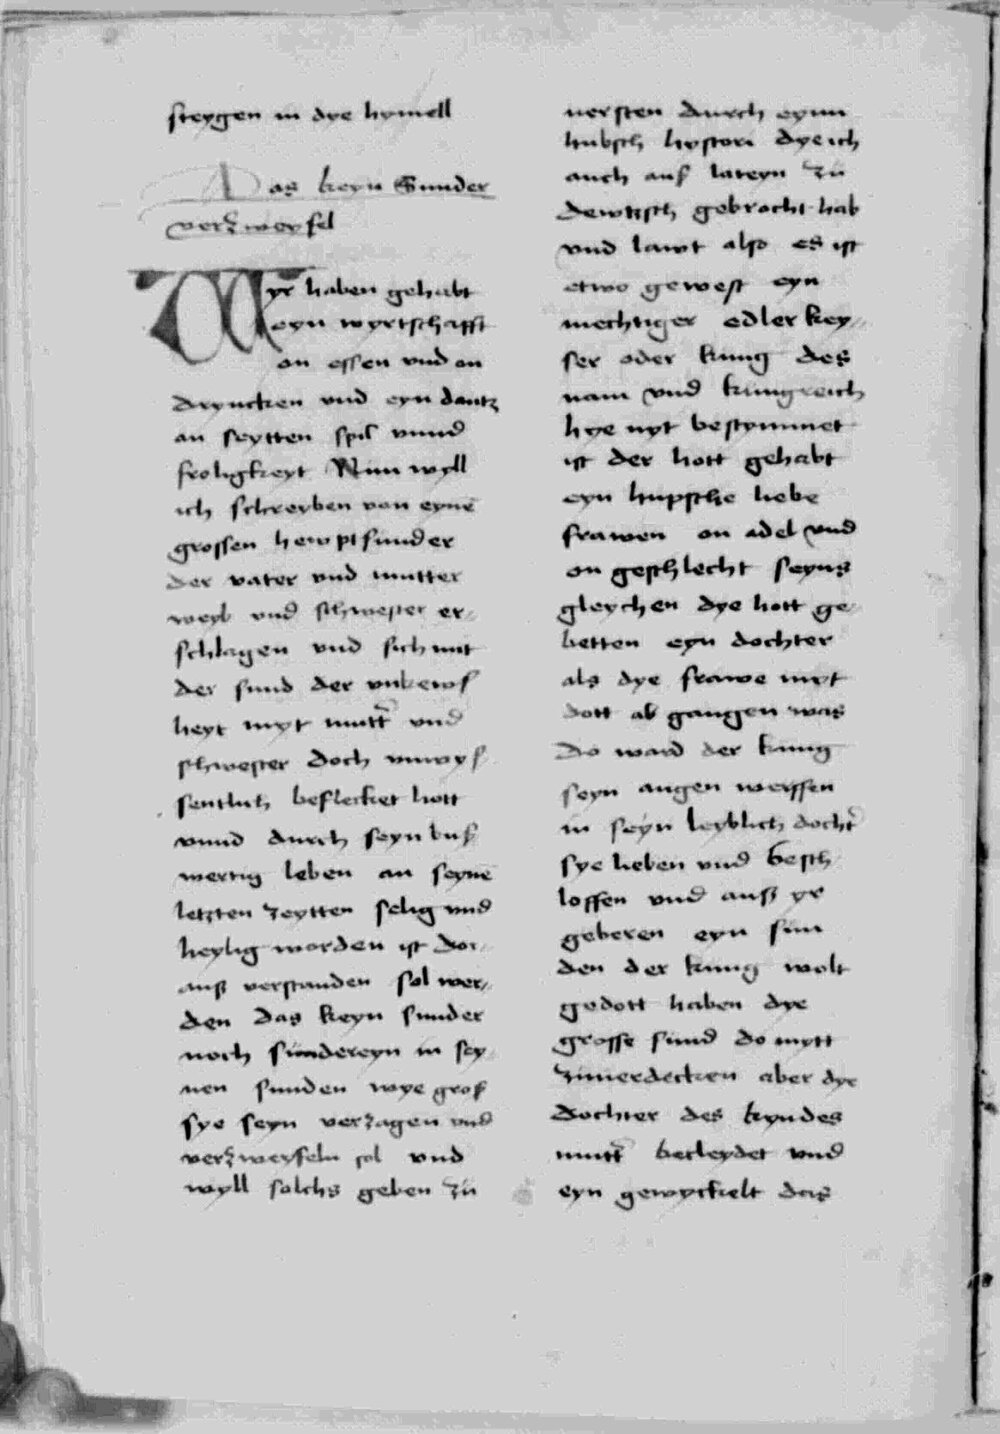 steygen in dye hymell
Das keyn Sunder
verzweyfel
Wyr haben gehabt
eyn wyrtschafft
on essen vnd on
dryncken vnd eyn dantz
an seytten spil vnnd
froligkeyt Nun wyll
ich schreyben von eynē
grossen hewptsunder
der vater vnd mutter
weyb vnd schwester er⸗
schlagen vnd sich mit
der sund der vnkews
heyt myt mutt̃ vnd
schwester doch vnwys
sentlich beflecket hott
vnnd durch seyn bus
wertig leben an seynē
letzten zeytten selig vnd
heylig worden ist dor⸗
auß verstanden sol wer⸗
den das keyn sunder
noch sundereyn in sey
nen sunden wye gros
sye seyn verzagen vnd
verzweyfeln sol vnd
wyll solchs geben zu
uersten durch eynn
hubsch hystori dye ich
auch aus lateyn zu
dewtzsch gebrocht hab
vnd lawt also es ist
etwo gewest eyn
mechtiger edler key⸗
ser oder kunig des
nam vnd kunigreich
hye nyt bestymmet
ist der hott gehabt
eyn hupsche liebe
frawen on adel vnd
on geschlecht seyns
gleychen dye hott ge⸗
betten eyn dochter
als dye frawe myt
dott ab gangen was
do ward der kunig
seyn augen werffen
in seyn leyblich docht̃
sye lieben vnd besch
loffen vnd auß yr
geberen eyn sun
den der kunig wolt
gedott haben dye
grosse sund do mytt
zuuerdecken aber dye
dochter des kyndes
mutt̃ becleydet vnd
eyn gewyckelt das